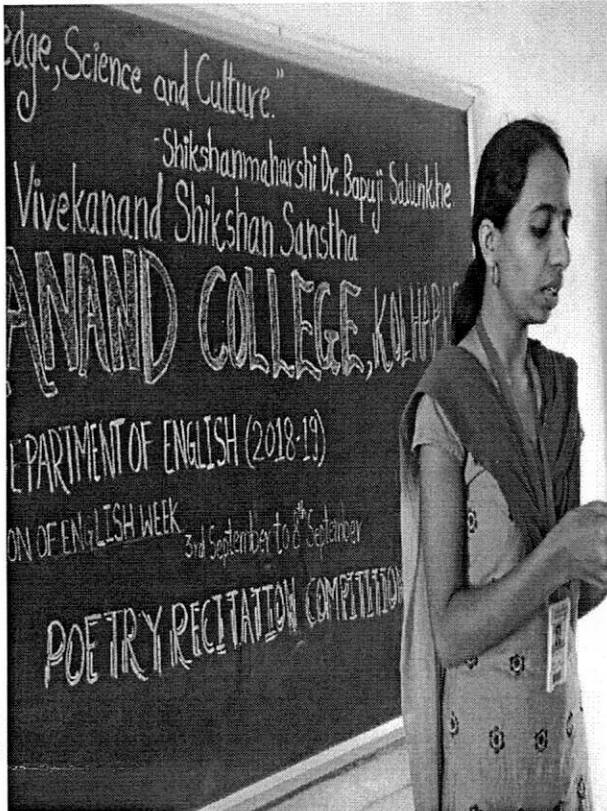 edge, Science and Culture."
-Shikshanmaharshi Dr. Bapuji Salunkhe
Vivekanand Shikshan Sanstha
ANAND COLLEGE, KOLHAPU
EPARTMENT OF ENGLISH (2018-19)
ON OF ENGLISH WEEK 3rd September to 8th September
POETRY RECITATION COMPITITION